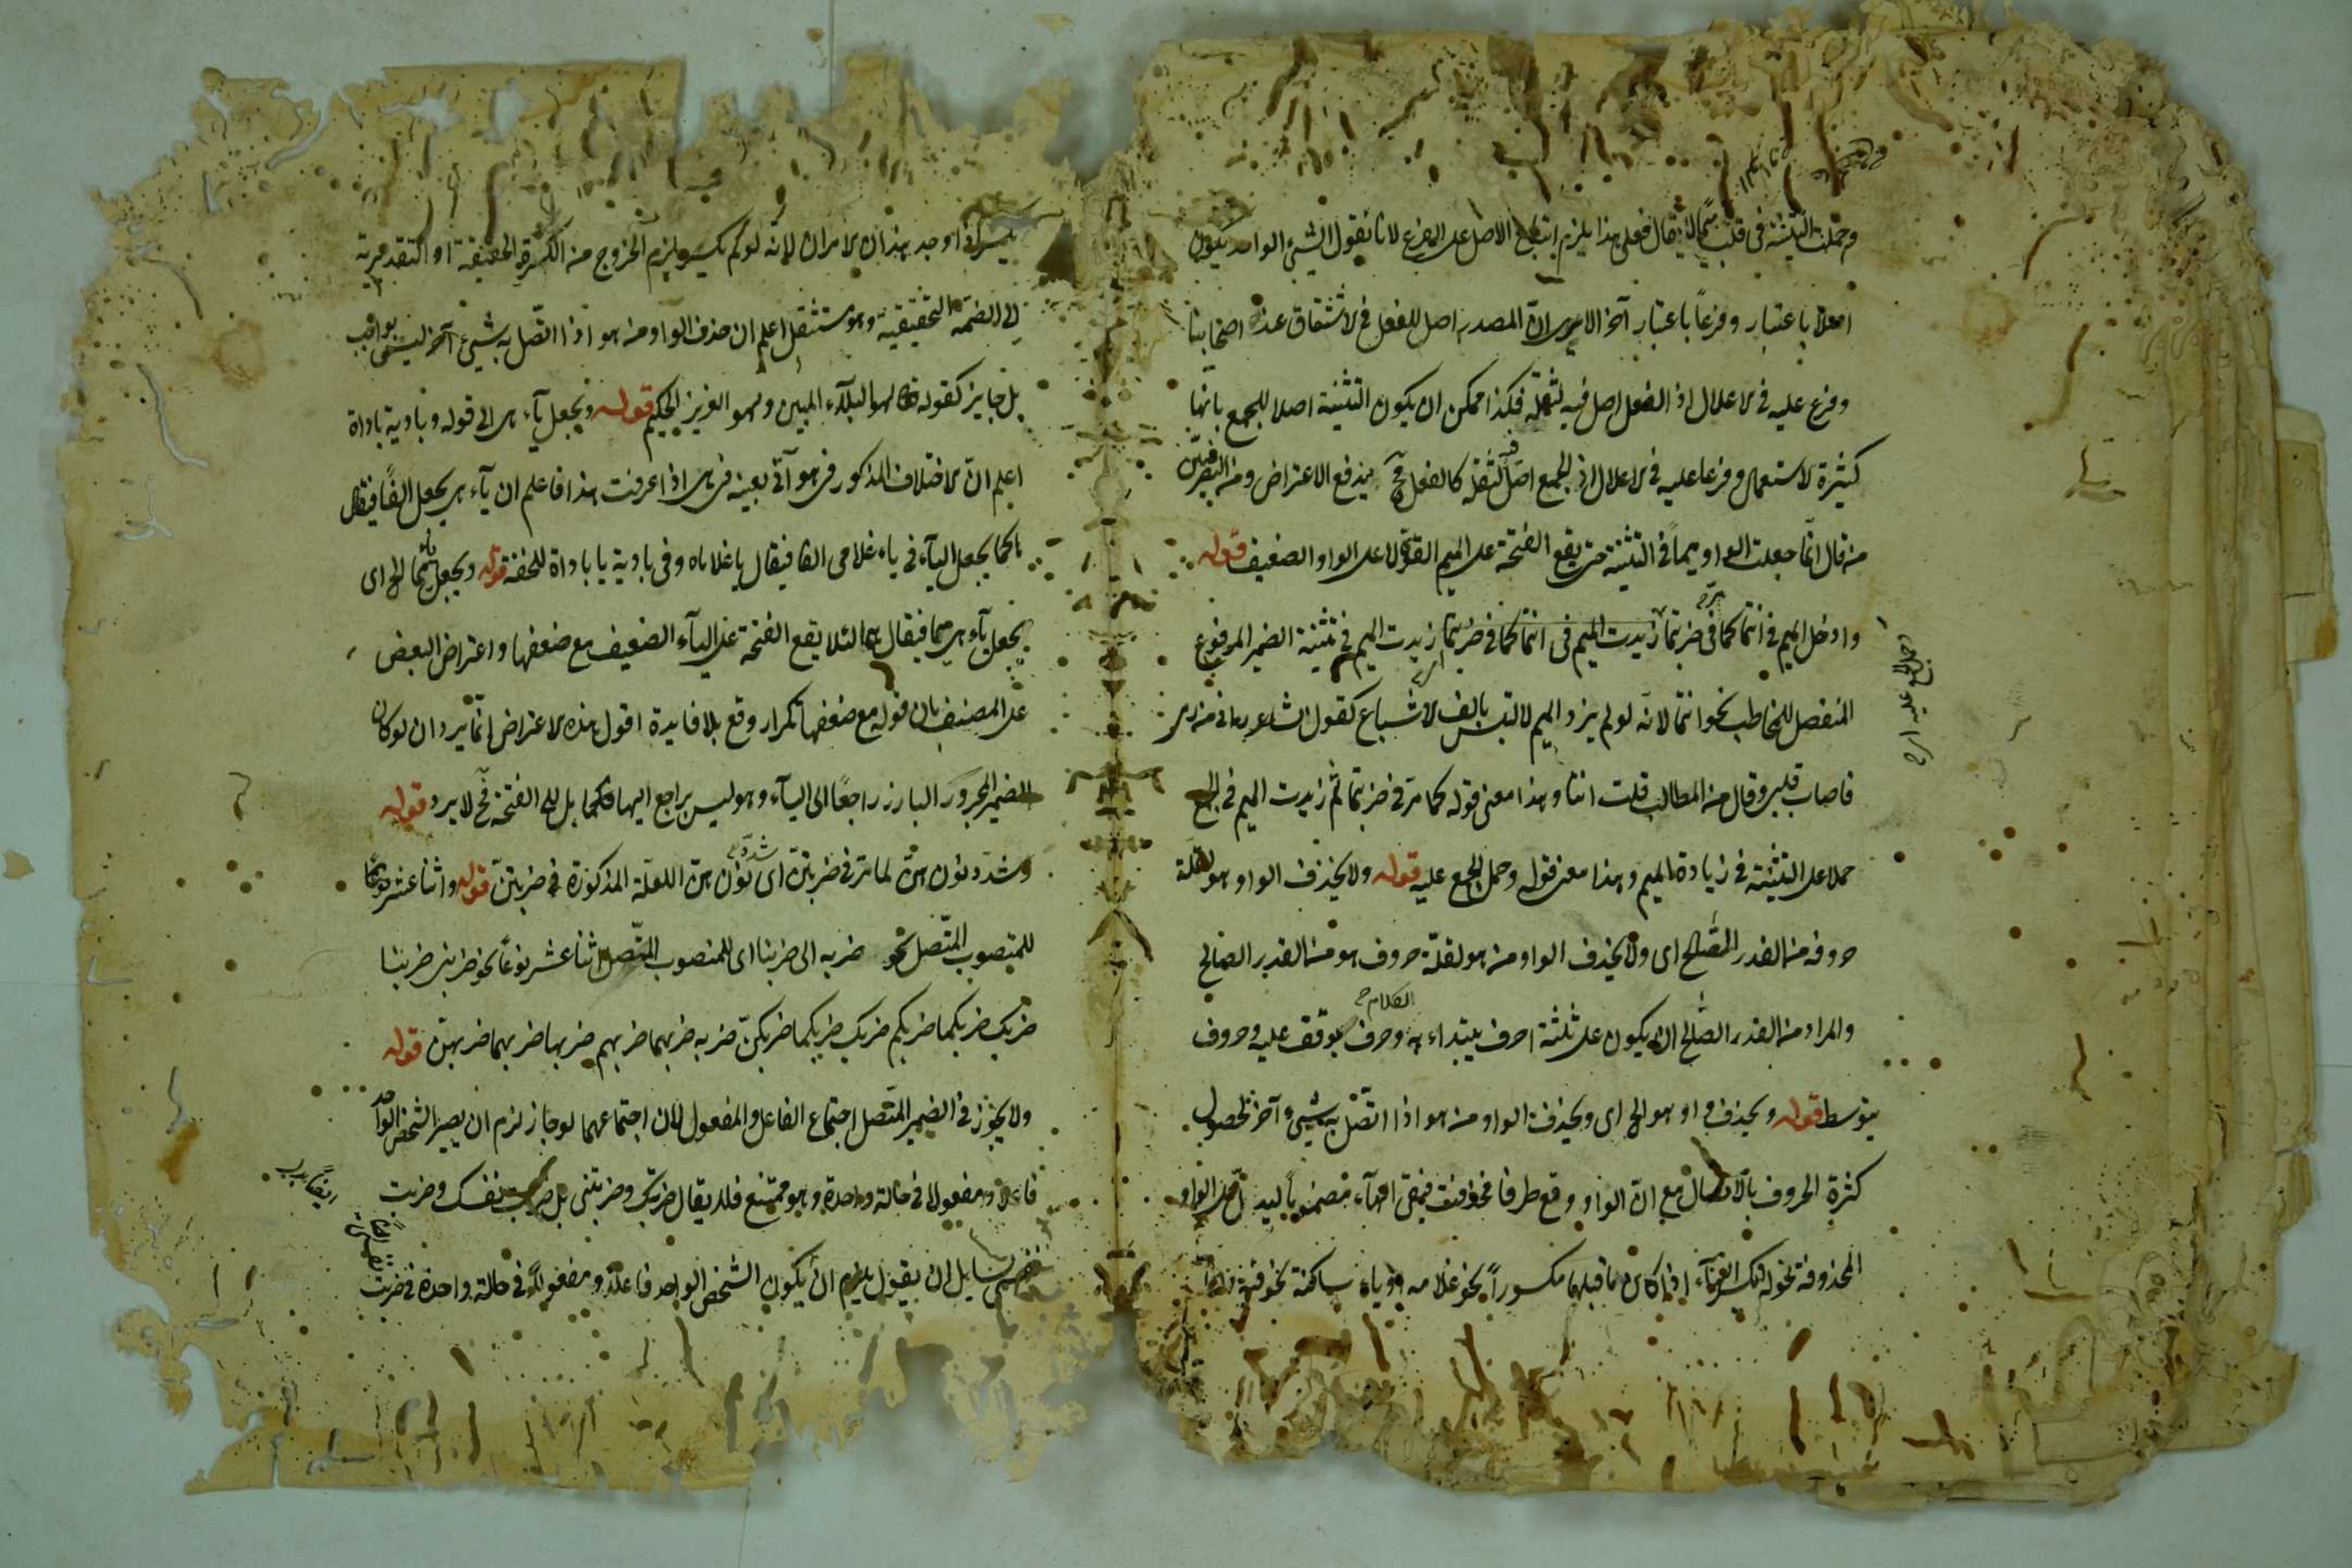 وحملت التثنية في قلب ميما لا يقال فعلى هذا يلزم ابتناء الاصل على الفرع لانا نقول الشيء الواحد يكون
اصلا باعتبار وفرعاً باعتبار آخر الا يرى ان المصدر اصل للفعل في الاشتقاق عند اصحابنا
وفرع عليه في الاعلال اذ الفعل اصل فيه لثقله فكذا ممكن ان يكون التثنية اصلا للجمع بانها
كثيرة الاستعمال وفرعا عليه في الاعلال اذ الجمع اصل لثقله كالفعل فح يندفع الاعتراض ومن البصريين
من قال انما جعلت الواو ميماً في التثنية حتى يقع الفتحة على الميم القوي لا على الواو الضعيف قوله
وادخل الميم في انتما كما في ضربتما زيدت الميم في انتما كما في ضربتما زيدت الميم في تثنية الضمير المرفوع
المنفصل للمخاطب نحو انتما لانه لو لم يزد الميم لالتبس بالف الاشباع كقول الشاعر
وقال من المطالب قلت انتا وهذا معنى قوله كما مر في ضربتما ثم زيدت الميم في الجمع
حملا على التثنية في زيادة الميم وهذا معنى قوله وحمل الجمع عليه قوله ولا يحذف الواو هو لقلة
حروفه من القدر الصالح اى ولا يحذف الواو من هو لقلة حروف هو من القدر الصالح
والمراد من القدر الصالح ان يكون على ثلثة احرف يبتداء به وحرف يوقف عليه وحروف
الكلام
يتوسط قوله ويحذف واو هو الخ اى ويحذف الواو من هو اذا اتصل به شيء آخر لحصول
كثرة الحروف بالاتصال مع ان الواو وقع طرفا فحذفت فبقى الهاء مضمونا ليدل على الواو
المحذوفة نحو له ويكسر الهاء اذا كان ما قبلها مكسوراً نحو غلامه او ياء ساكنة نحو فيه
اوجد هذان الامران لانه لو لم يكسر يلزم الخروج من الكسرة الحقيقة او التقديرية
الى الضمة التحقيقية وهو مستثقل اعلم ان حذف الواو من هو اذا اتصل به شيء آخر ليس بواجب
بل جايز كقوله تعا لهو البلاء المبين ولهو العزيز الحكيم قوله ويجعل ياء هى الى قوله وباديه باداة
اعلم ان الاختلاف المذكور في هو آت بعينه في هى اذا عرفت هذا فاعلم ان ياء هى يجعل الفًا فيقال
ها كما يجعل الياء في ياء غلامى الفا فيقال يا غلاماه وفى بادية يا باداة للخفة قوله ويجعل ميما الخ اى
يجعل ياء هى ميما فيقال هما لئلا يقع الفتحة على الياء الضعيف مع ضعفها واعتراض البعض
على المصنف بان قوله مع ضعفها تكرار وقع بلا فايدة اقول هذه الاعتراض انما يرد ان لو كان
الضمير المجرور البارز راجعًا الى الياء وهو ليس براجع اليها بل الى الفتحة فح لا يرد قوله
وشدد نون هن لما مر في ضربتن اى شدد نون هن اللعلة المذكورة في ضربتن قوله واثنا عشر نوعًا
للمنصوب المتصل نحو ضربه الى ضربنا اى للمنصوب المتصل اثنا عشر نوعاً نحو ضربنى ضربنا
ضربك ضربكما ضربكم ضربك ضربكما ضربكن ضربه ضربهما ضربهم ضربها ضربهما ضربهن قوله
ولا يجوز في الضمير المتصل اجتماع الفاعل والمفعول لان اجتماعهما لو جاز لزم ان يصير الشخص الواحد
فاعلا ومفعولا في حالة واحدة وهو ممتنع فلا يقال ضربتك وضربتنى بل ضربت نفسك وضربت
نفسى سايل ان يقول يلزم ان يكون الشخص الواحد فاعلا ومفعولاً في حالة واحدة في ضربت